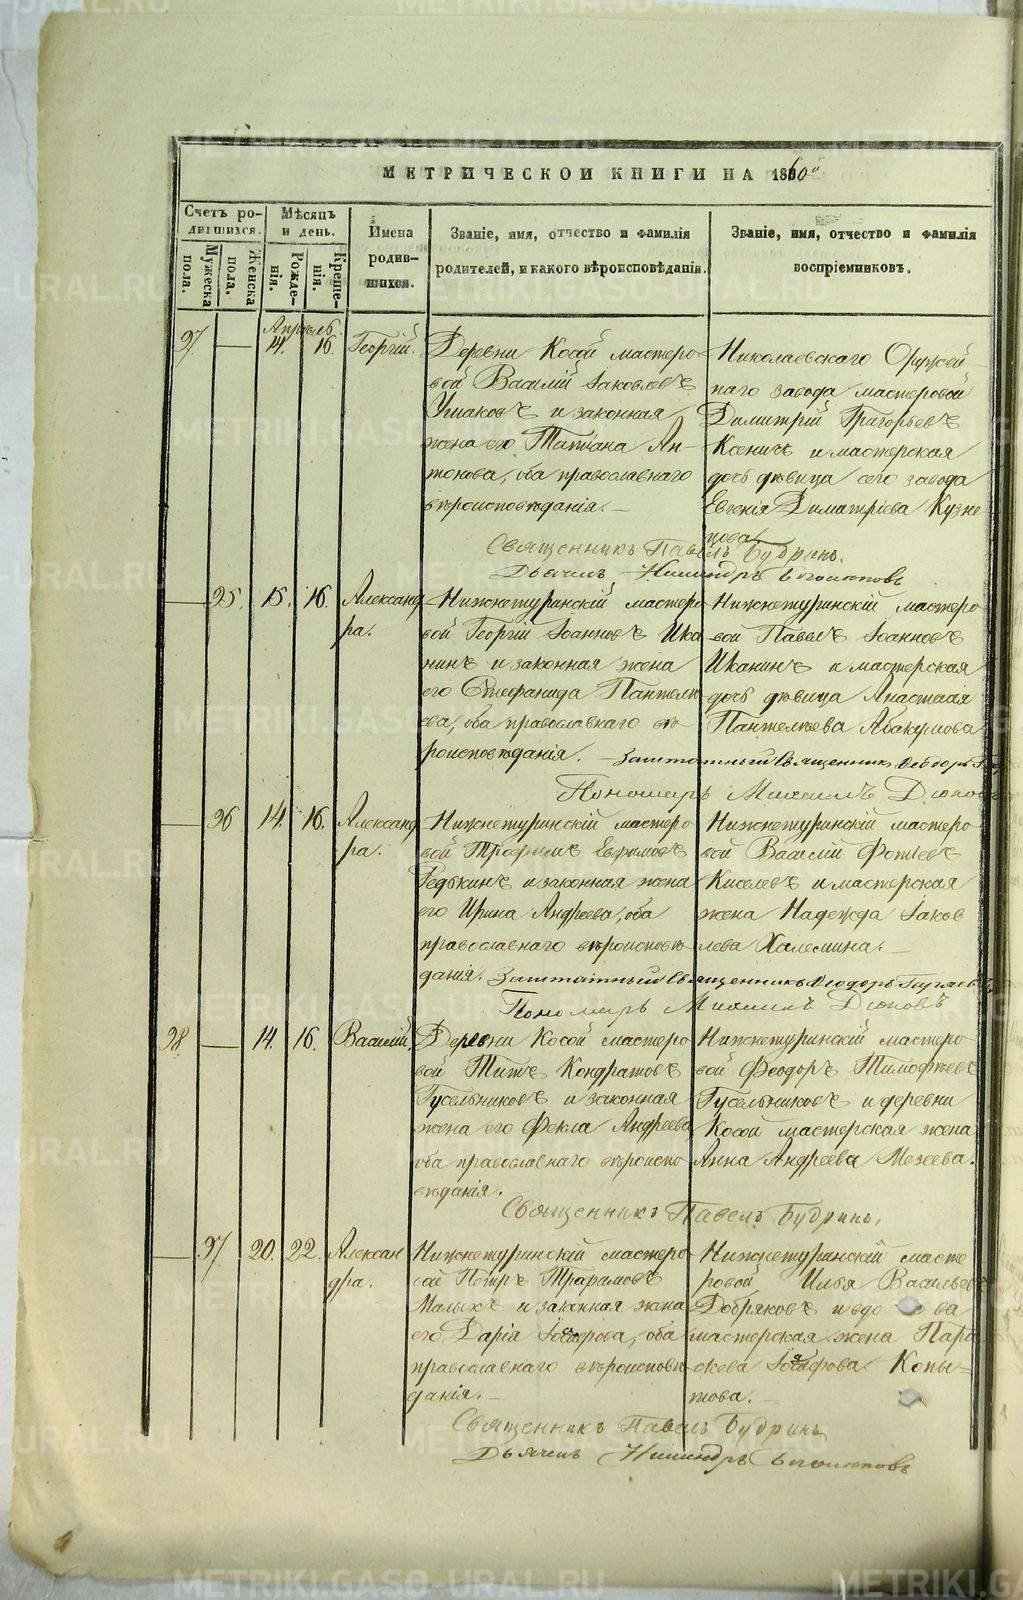 МЕТРИЧЕСКОЙ КНИГИ НА 1860й
Счетъ ро-
дившихся.
Мужеска
пола.
Женска
пола.
Мѣсяцъ
и день.
Рожде-
нія.
Креще-
нія.
Имена
родив-
шихся.
Званіе, имя, отчество и фамилія
родителей, и какого вѣроисповѣданія.
Званіе, имя, отчество и фамилія
воспріемниковъ.
Апрѣль
97 — 14. 16. Георгій.
Деревни Косой мастеро-
вой Василій Іаковлевъ
Ушаковъ и законная
жена его Татіана Ан-
тонова, оба православнаго
вѣроисповѣданія. —
Николаевскаго Оружей-
наго завода мастеровой
Димитрій Григорьевъ
Ксенинъ и мастерская
дочь дѣвица сего завода
Евгенія Димитріева Кузне
цова.
Священникъ Павелъ Будринъ.
Дьячекъ
— 25. 15. 16. Александ
ра.
Нижнетуринскій мастеро
вой Георгій Іоанновъ Ика
нинъ и законная жена
его Епифанида Пантелѣ
ева, оба православнаго вѣ-
роисповѣданія. —
Нижнетуринскій мастеро-
вой Павелъ Іоанновъ
Иканинъ и мастерская
дочь дѣвица Анастасія
Пантелѣева Абакумова
Заштатный Священникъ Ѳеодоръ
Пономарь Михаилъ Дюковъ
— 26 14. 16. Александ
ра.
Нижнетуринскій мастеро-
вой Трофимъ Евфимовъ
Редькинъ и законная жена
его Ирина Андреева, оба
православнаго вѣроисповѣ-
данія.
Нижнетуринскій мастеро-
вой Василій Фотіевъ
Киселевъ и мастерская
жена Надежда Іаков
лева Халемина. —
Заштатный Священникъ Ѳеодоръ
Пономарь Михаилъ Дюковъ
98 — 14. 16. Василій.
Деревни Косой мастеро-
вой Титъ Кондратовъ
Гусельниковъ и законная
жена его Фекла Андреева
оба православнаго вѣроиспо-
вѣданія.
Нижнетуринскій мастеро-
вой Феодоръ Тимофѣевъ
Гусельниковъ и деревни
Косой мастерская жена
Анна Андреева Мезева.
Священникъ Павелъ Будринъ,
— 27. 20. 22. Алексан
дра.
Нижнетуринскій мастеро-
вой Петръ Трафимовъ
Малыхъ и законная жена
его Дарія оба
православнаго вѣроисповѣ-
данія. —
Нижнетуринскій масте
ровой Илья Васильевъ
Добряковъ и вдова
мастерская жена Пара
скева Копы-
това. —
Священникъ Павелъ Будринъ
Дьячекъ
METRIKI.GASO-URAL.RU